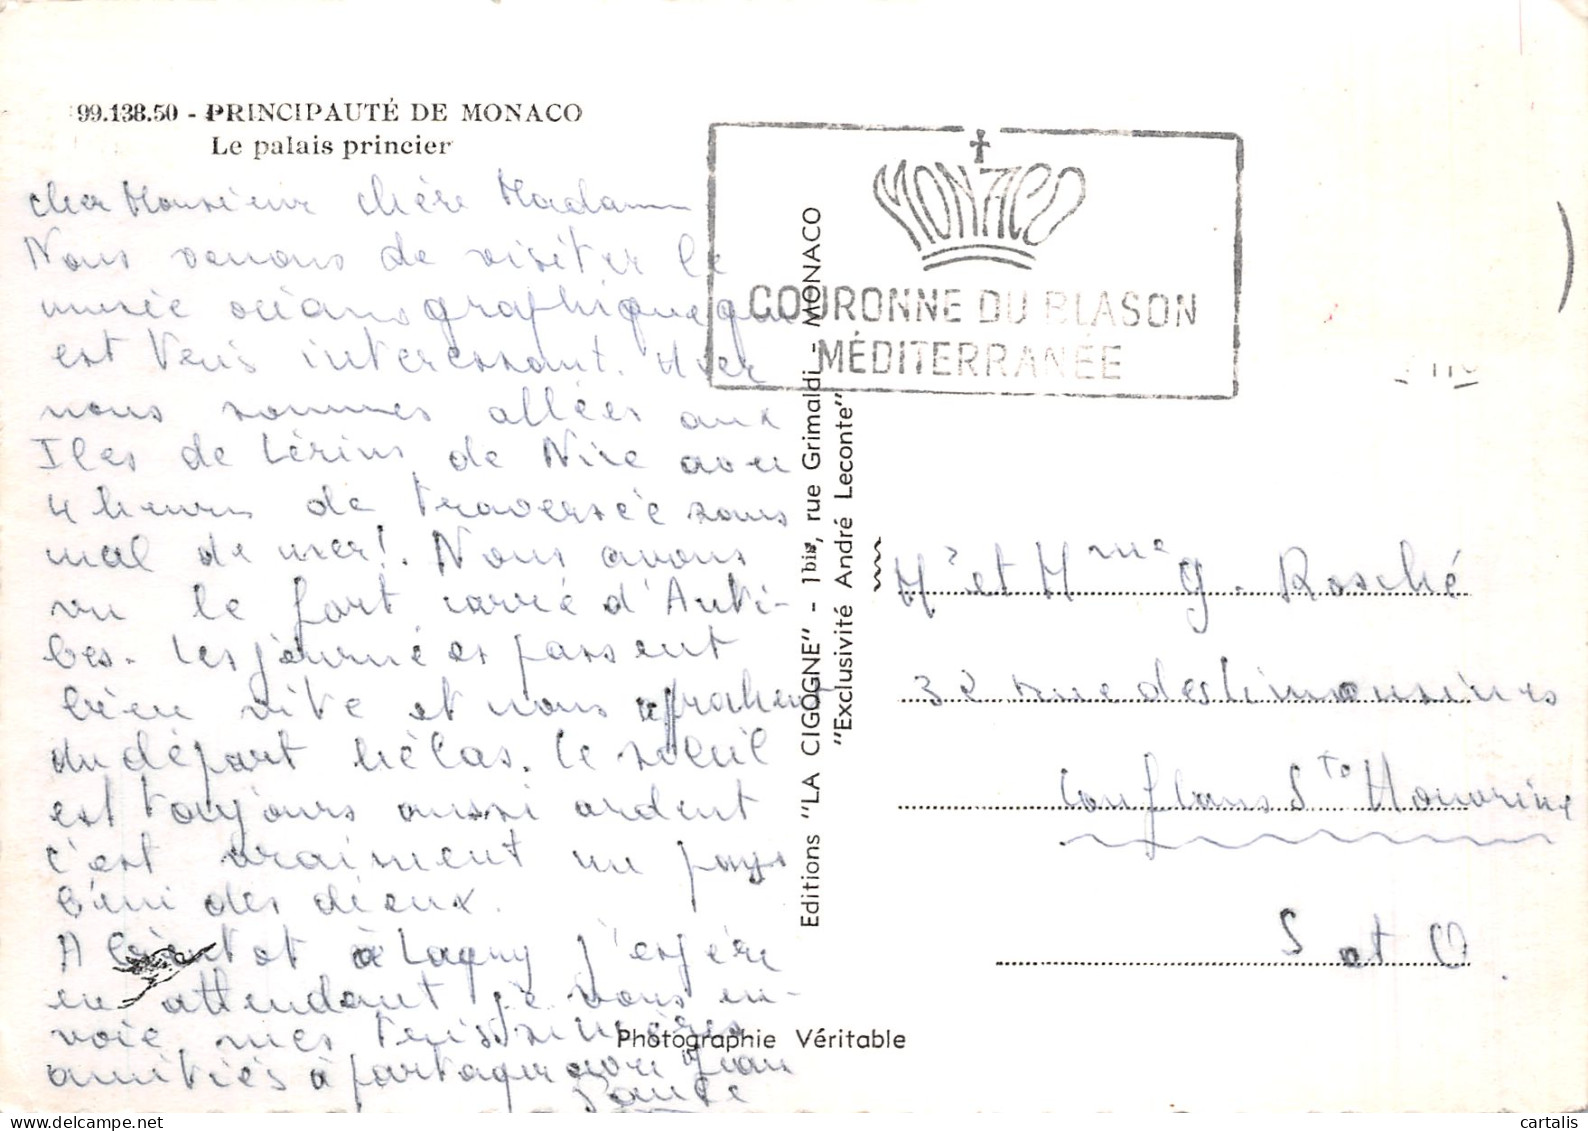 99.138.50 - PRINCIPAUTÉ DE MONACO
Le palais princier
Cher Monsieur chère Madame
Nous venons de visiter le
musée océanographique qui
est très interessant. Hier
nous sommes allées aux
Iles de Lérins de Nice avec
4 heures de traversée sans
mal de mer!. Nous avons
vu le fort carré d'Anti-
bes. Les journées passent
bien vite et nous
du départ hélas. Le soleil
est toujours aussi ardent
c'est vraiment un pays
béni des dieux.
A bientot à Lagny j'espère
en attendant je vous en-
voie mes très sincères
amitiés à partager avec Jean
MONACO
COURONNE DU BLASON
MÉDITERRANÉE
Editions "LA CIGOGNE" - 1bis, rue Grimaldi - MONACO
"Exclusivité André Leconte"
Photographie Véritable
Mr et Mme G. Rosché
32 rue des Limousines
Conflans Ste Honorine
S et O.
cartalis